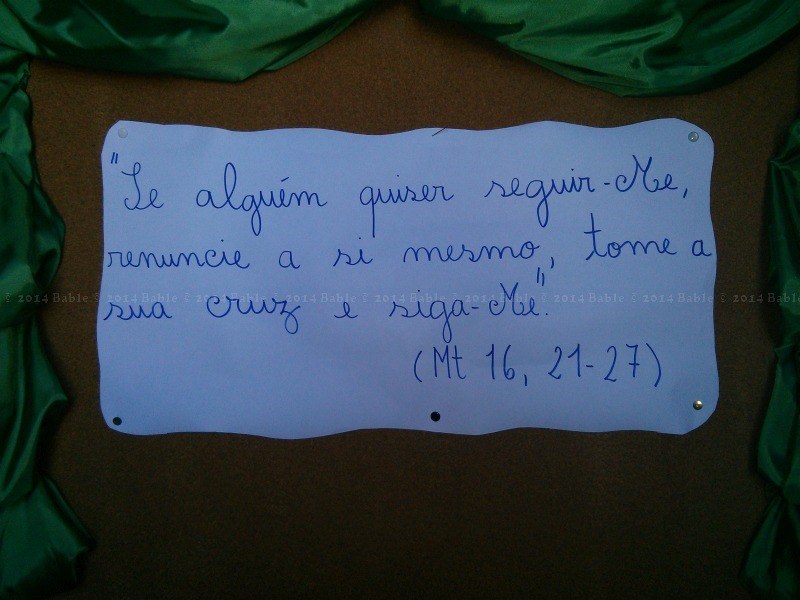 "Se alguém quiser seguir-Me,
renuncie a si mesmo, tome a
sua cruz e siga-Me".
(Mt 16, 21-27)
© 2014 Bable © 2014 Bable © 2014 Bable © 2014 Bable © 2014 Bable © 2014 Bable © 2014 Bable © 2014 Bable © 2014 Bable